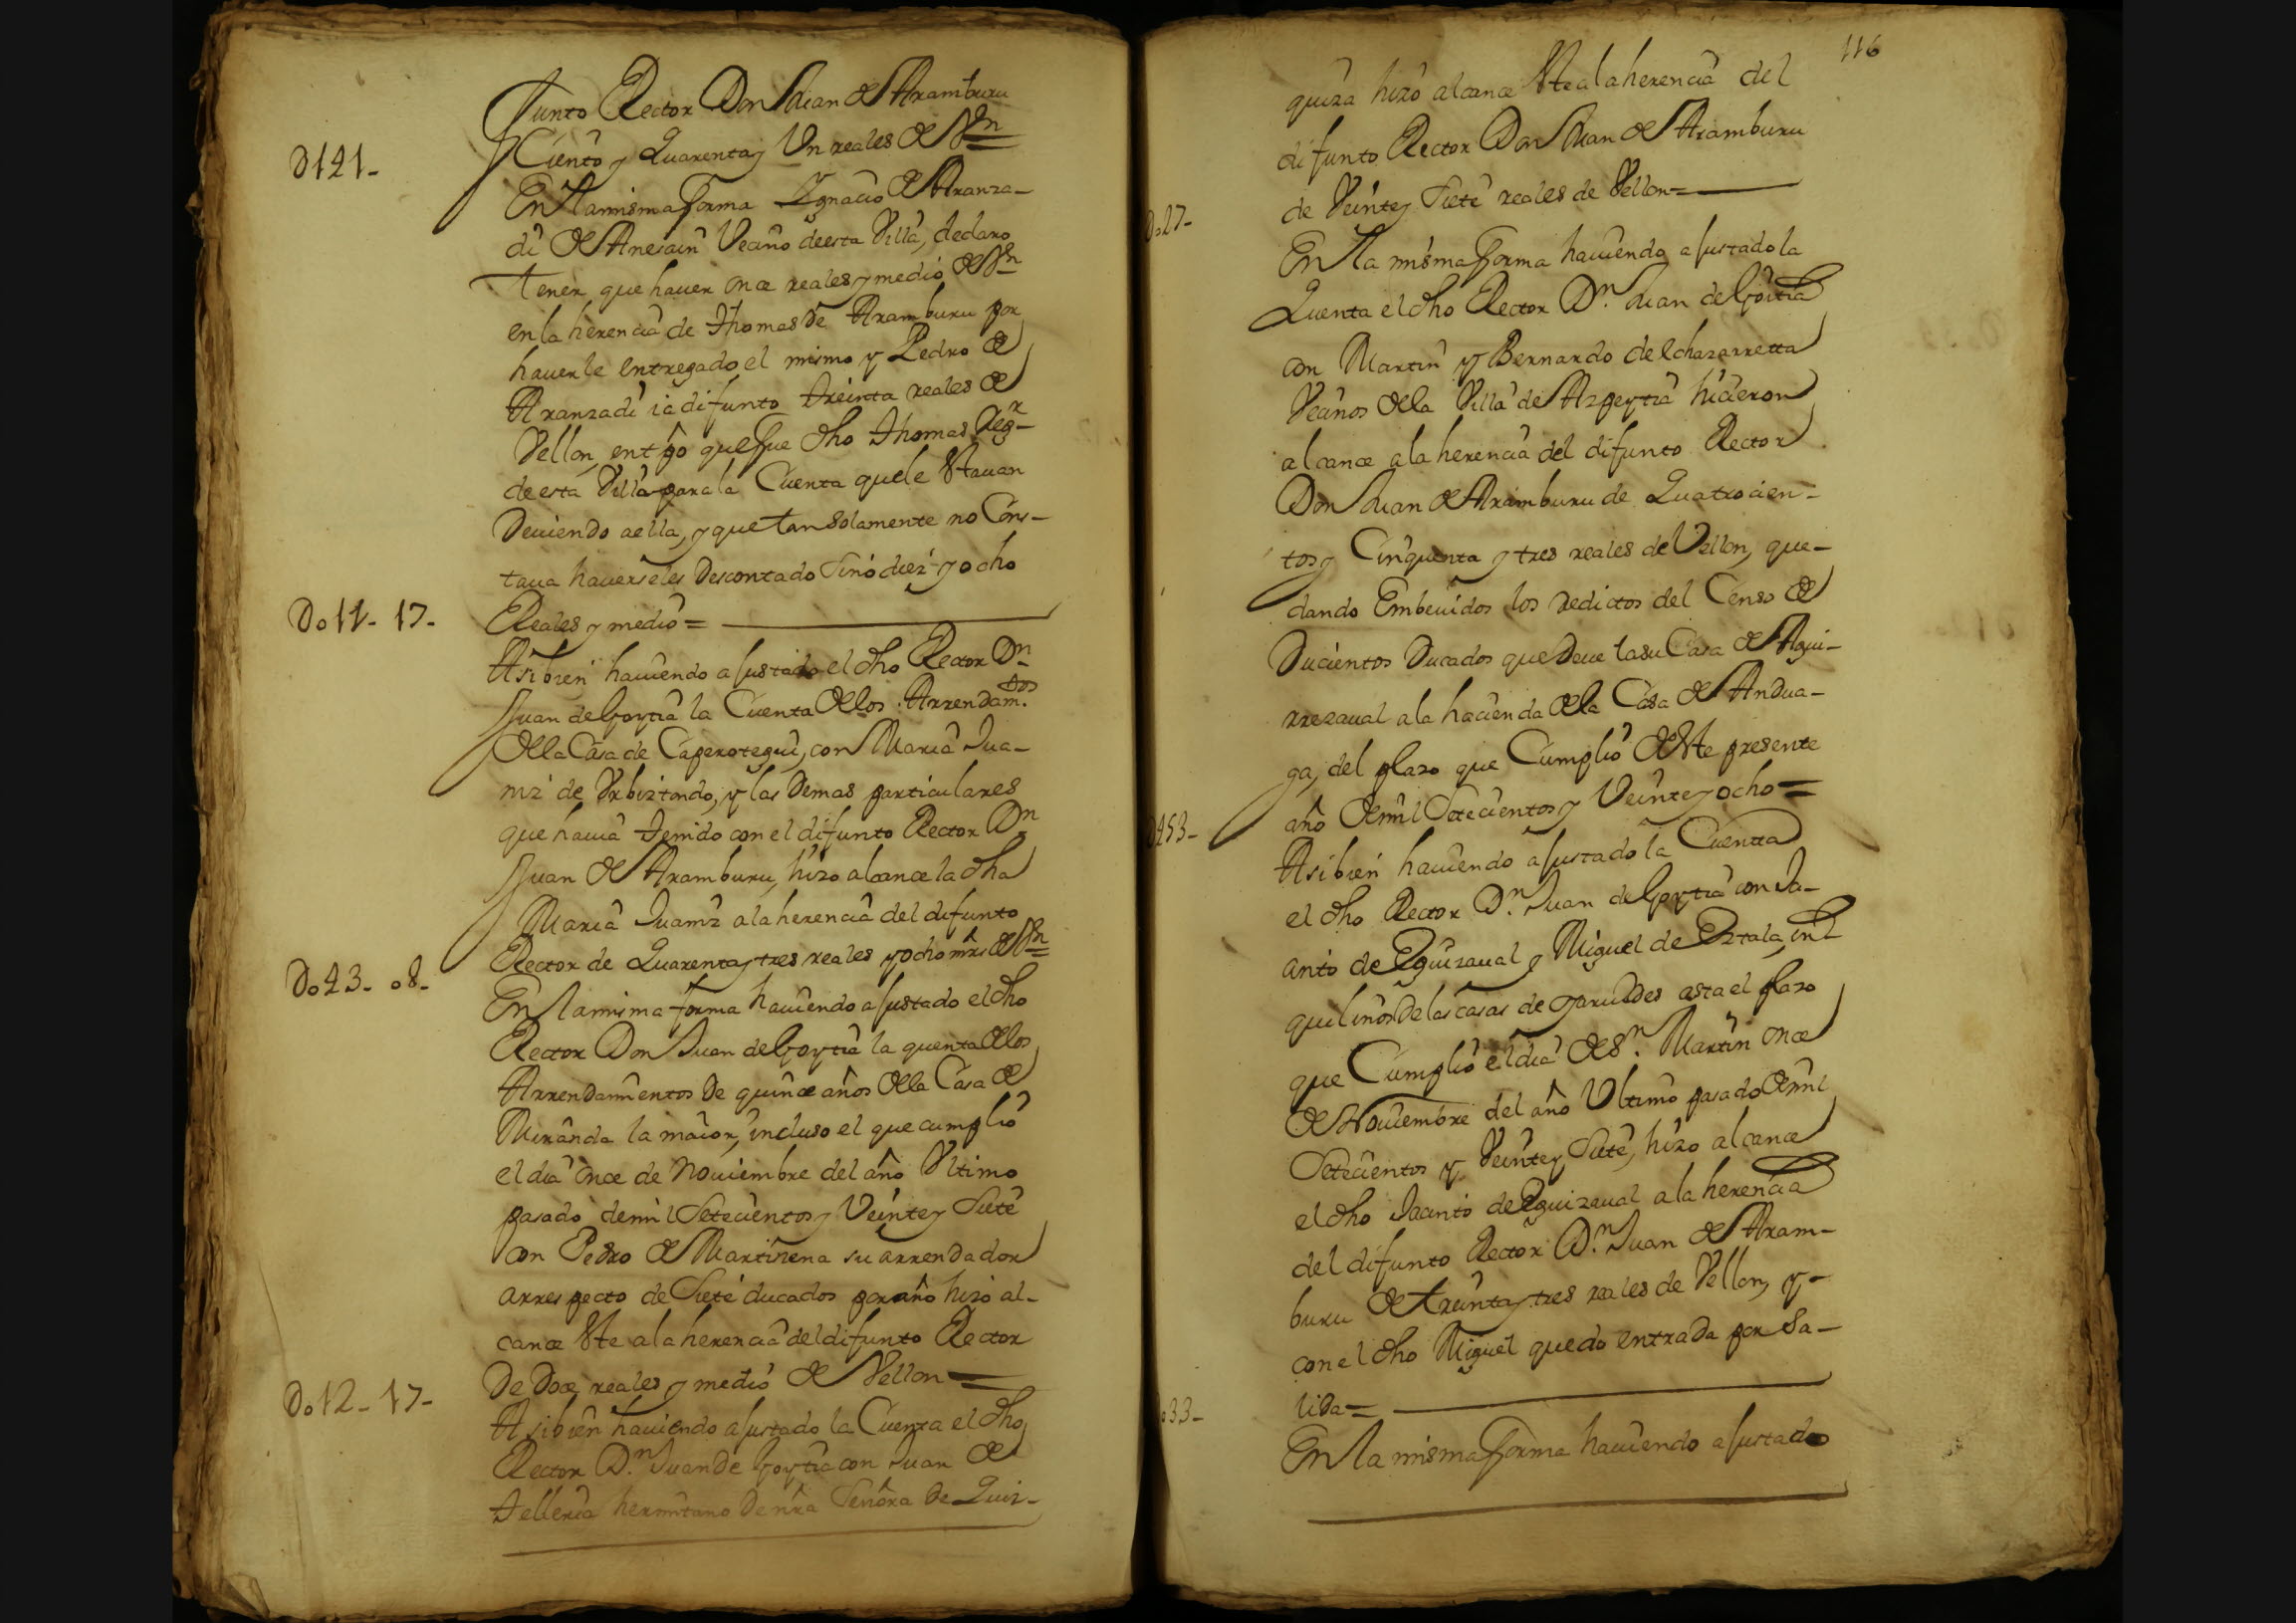 funto Rector Don Juan de Aramburu
D141-
Ciento y Quarenta y Un reales de Vn
En la misma forma Ygnacio de Aranza-
di de Anesain Vecino de esta Villa, declaro
tener que hauer once reales y medio de Vn
en la herencia de Thomas de Aramburu por
hauerle entregado el mismo y Pedro de
Aranzadi ia difunto treinta reales de
Vellon, entpo que fue dho Thomas Regr
de esta Villa para la Cuenta que le estauan
Deuiendo a ella, y que tan Solamente no Cons-
taua hauerseles Descontado Sino diez y ocho
Do11- 17-
Reales y medio =
Asibien hauiendo ajustado el dho Rector Dn
Juan de Goytia la Cuenta de los Arrendamtos
de la Casa de Caperotegui, con Maria Jua-
niz de Urbiztondo, y las Demas particulares
que hauia Tenido con el difunto Rector Dn
Juan de Aramburu, hizo alcance la dha
Maria Juaniz a la herencia del difunto
Do43- 08-
Rector de Quarenta y tres reales y ocho mrs de Vn
En la misma forma hauiendo ajustado el dho
Rector Don Juan de Goytia la quenta de los
Arrendamientos de quince años de la Casa de
Miranda la maior, incluso el que cumplio
el dia once de Nouiembre del año Vltimo
pasado de mil Setecientos y Veinte y Siete
con Pedro de Martinena su arrendador
arrespecto de Siete ducados por año hizo al-
cance este a la herencia del difunto Rector
Do12- 17-
De Doce reales y medio de Vellon =
Asibien hauiendo ajustado la Cuenta el dho
Rector Dn. Juan de Goytia con Juan de
Telleria hermitano de nra Señora de Quiz-
116
quiza hizo alcance este a la herencia del
difunto Rector Don Juan de Aramburu
Do27-
de Veinte y Siete reales de Vellon =
En la misma forma hauiendo ajustado la
Quenta el dho Rector Dn. Juan de Goitia
con Martin y Bernardo de Echazarretta
Vecinos de la Villa de Azpeytia hicieron
alcance a la herencia del difunto Rector
Don Juan de Aramburu de Quatrocien-
tos y Cinquenta y tres reales de Vellon, que-
dando Embeuidos los redictos del Censo de
Ducientos Ducados que Deue la su Casa de Agui-
rrezaual a la hacienda de la Casa de Andua-
ga, del plazo que Cumplio de este presente
D453-
año de mil Setecientos y Veinte y ocho =
Asibien hauiendo ajustado la Cuenta
el dho Rector Dn. Juan de Goytia con Ja-
cinto de Eguizaual y Miguel de Eztala, in-
quilinos De las casas de Garuides asta el plazo
que Cumplio el dia de Sn. Martin once
de Nouiembre del año Vltimo pasado de mil
Setecientos y Veinte y Siete, hizo alcance
el dho Jacinto de Eguizaual a la herencia
del difunto Rector Dn. Juan de Aram-
buru de treinta y tres reales de Vellon, y-
con el dho Miguel quedo entrada por Sa-
o33-
lida =
En la misma forma hauiendo ajustado